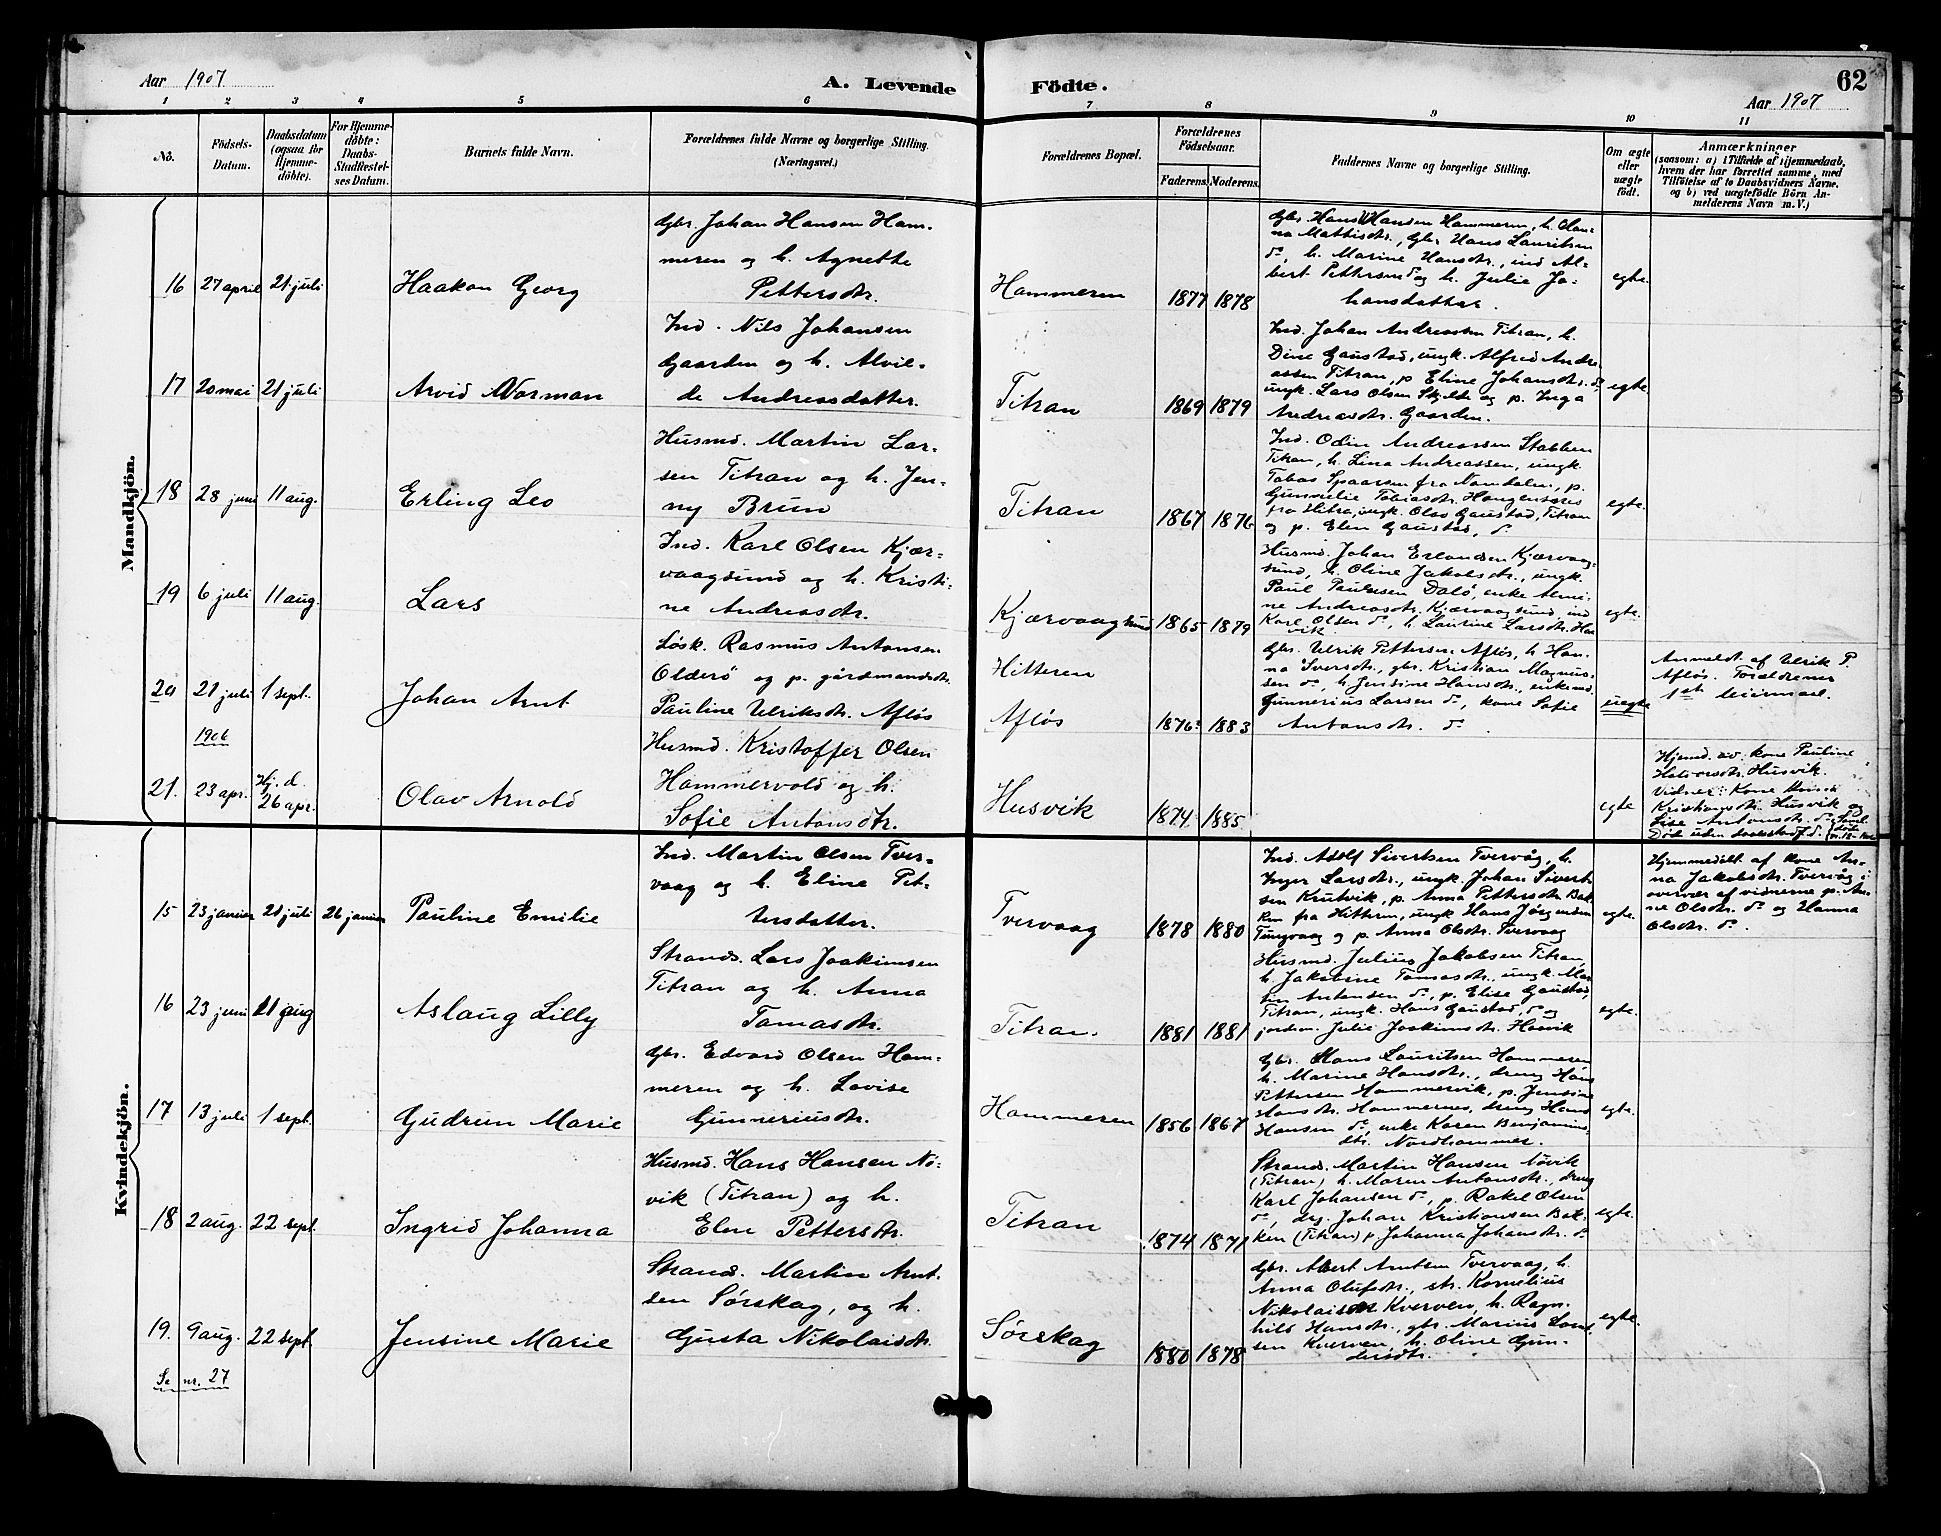 Aar 1907
A. Levende Födte.
62
Aar 1907
1 2 3 4 5 6 7 8 9 10 11
No.
Födsels-
Datum.
Daabsdatum
(ogsaa for
Hjemme-
döbte).
For Hjemme-
döbte:
Daabs-
Stadfæstel-
ses Datum.
Barnets fulde Navn.
Forældrenes fulde Navne og borgerlige Stilling.
(Næringsvei.)
Forældrenes Bopæl.
Forældrenes
Födselsaar.
Faderens. Moderens.
Faddernes Navne og borgerlige Stilling.
Om ægte
eller
uægte
födt.
Anmærkninger
(saasom: a) i Tilfælde af Hjemmedaab,
hvem der har forrettet samme, med
Tilföielse af to Daabsvidners Navne.
og b) ved uægtefödte Börn An-
melderens Navn m.V.)
Mandkjön.
16 27 april 21 juli
Haakon Georg
Gbr. Johan Hansen Ham-
meren og h. Agnette
Pettersdtr.
Hammeren
1877 1878
Gbr. Hans Hansen Hammeren, h. Olau-
na Mattisdtr., Gbr. Hans Lauritsen
do, h. Marine Hansdtr., ind. Al-
bert Pettersen do og h. Julie Jo-
hansdatter.
egte.
17 20 mai 21 juli
Arvid Norman
Ind. Nils Johansen
Gaarden og h. Alvil-
de Andreasdatter.
Titran
1869 1879
Ind. Johan Andreassen Titran, h.
Dine Gaustad, ungk. Alfred Andre-
assen Titran, p. Eline Johansdtr. do
ungk. Lars Olsen Skjelte og p. Inga
Andreasdtr. Gaarden.
egte.
18 28 juni 11 aug.
Erling Leo
Husmd. Martin Lar-
sen Titran og h. Jen-
ny Brun
Titran
1867 1876
Ind. Odin Andreassen Stabben
Titran, h. Lina Andreassen, ungk.
Tobas Spaarsen fra Namdalen, p.
Gunnelie Tobiasdtr. Haugennæs
fra Hitra, ungk. Olav Gaustad, Titran
og p. Elen Gaustad, do
egte.
19 6 juli 11 aug.
Lars
Ind. Karl Olsen Kjær-
vaagsund og h. Kristi-
ne Andreasdtr.
Kjærvaagsund
1865 1879
Husmd. Johan Erlandsen Kjærvaag-
sund, h. Oline Jakobsdtr., ungk.
Paul Paulsen Dalø, enke
Andreasdtr. Kjærvaagsund, ind
Karl Olsen do, h. Laurine Larsdtr. Hau-
vik.
egte.
20 21 juli 1 sept.
Johan Arnt
Løsk. Rasmus Antonsen
Olderø og p. gårdmandsdtr.
Pauline Ulriksdtr. Afløs
Hitteren
Afløs
1876 1883
Gbr. Ulrik Pettersen Afløs, h. Han-
na Iversdtr., gbr. Kristian Magnus-
sen do, h. Jensine Hansdtr., enkemd.
Gunnerius Larsen do, kone Sofie
Antonsdtr. do
uegte
Anmeldt af Ulrik P.
Afløs. Forældrenes
1ste leiermaal.
1906
21. 23 apr. Hj. d.
26 apr.
Olav Arnold
Husmd. Kristoffer Olsen
Hammervold og h.
Sofie Antonsdtr.
Husvik
1874 1885
egte
Hjemd. av kone Pauline
Halvorsdtr. Husvik.
Vidner: Kone
Kristiansdtr. Husvik og
Lise Antonsdtr. do
Død uden
Kvindekjön.
15 23 januar 21 juli 26 januar
Pauline Emilie
Ind. Martin Olsen Tver-
vaag og h. Eline Pet-
tersdatter.
Tvervaag
1878 1880
Ind. Adolf Sivertsen Tvervåg, h.
Inger Larsdtr., ungk. Johan Sivert-
sen Krutvik, p. Anna Pettersdtr. Bak-
ken fra Hitteren, ungk. Hans Jørgensen
Tungvaag og p. Anna Olsdtr. Tvervaag
egte.
Hjemmedøbt af kone An-
na Jakobsdtr. Tvervåg i
overvær af vidnerne p. An-
ne Olsdtr. do og Hanna
Olsdtr. do.
16 23 juni 11 aug
Aslaug Lilly
Strands. Lars Joakimsen
Titran og h. Anna
Tomasdtr.
Titran.
1881 1881
Husmd. Julius Jakobsen Titran,
h. Jakobine Tomasdtr., ungk. Mar-
tin Antonsen do, p. Elise Gaustad,
Titran, ungk. Hans Gaustad, do og
jordm. Julie Joakimsdtr. Husvik
egte.
17 13 juli 1 sept.
Gudrun Marie
Gbr. Edvard Olsen Ham-
meren og h. Lovise
Gunneriusdtr.
Hammeren
1856 1867
Gbr. Hans Lauritsen Hammeren
h. Marine Hansdtr., dreng Hans
Pettersen Hammervik, p. Jensine
Hansdtr. Hammernes, dreng Hans
Hansen do, enke Karen Benjamins-
dtr. Nordhammer.
egte.
18 2 aug. 22 sept.
Ingrid Johanna
Husmd. Hans Hansen Nø-
vik (Titran) og h.
Elen Pettersdtr.
Titran
1874 1871
Strands. Martin Hansen Nøvik
(Titran) h. Maren Antonsdtr., dreng
Karl Johansen do, p. Rakel Olsen
do, drg. Johan Kristiansen Bak-
ken (Titran) p Johanna Johansdtr. do
egte.
19. 9 aug. 22 sept.
Jensine Marie
Strands. Martin Arnt-
sen Sørskag, og h.
Gusta Nikolaisdtr.
Sørskag
1880 1878
Gbr. Albert Arntsen Tvervaag, h.
Anna Olufsdtr., str. Kornelius
Nikolaisen Kverven, h. Ragn-
hild Hansdtr., gbr. Marius Land-
sen Kverven, h. Oline Gun-
dersdtr.
egte.
Se nr. 27